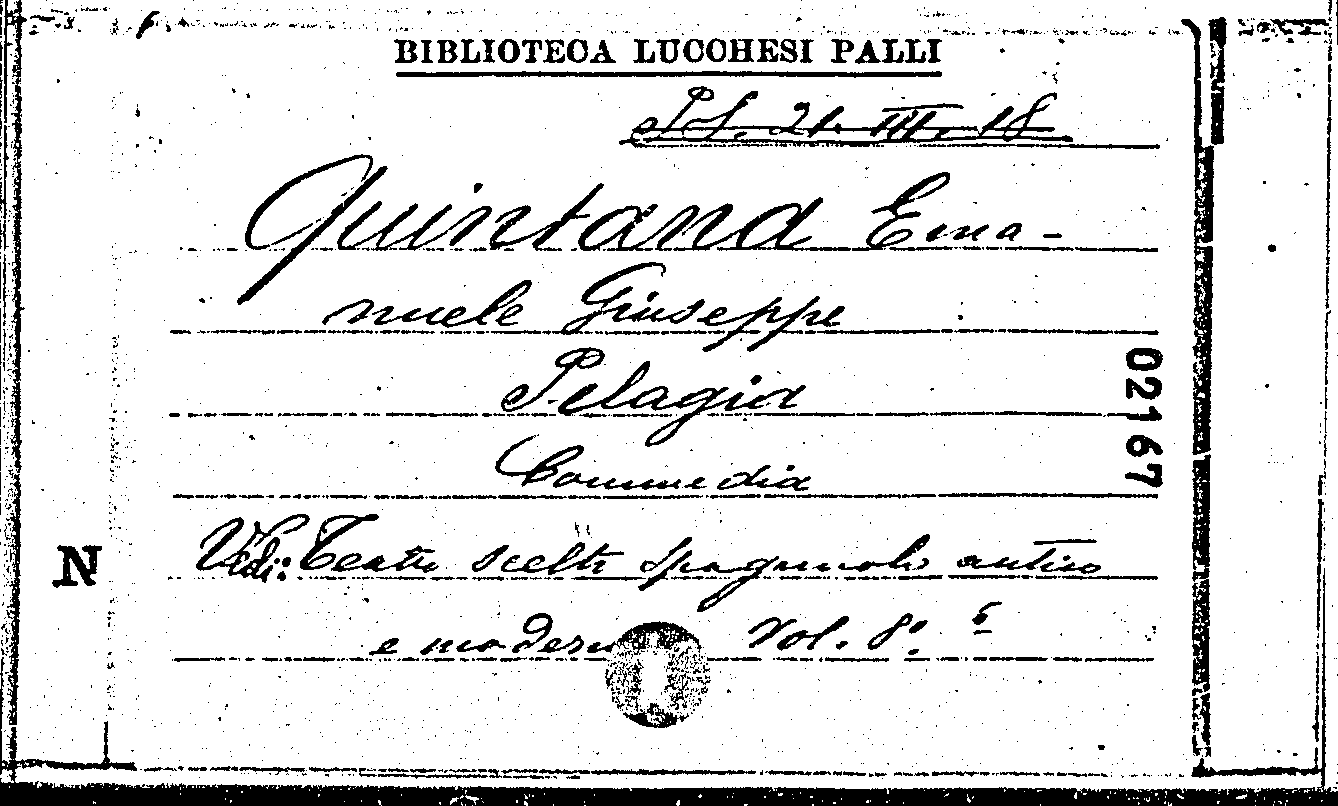 BIBLIOTECA LUCCHESI PALLI
PS. 21. III. 18
Quintana Ema-
nuele Giuseppe
Pelagia
Commedia
Vedi: Teatro scelto spagnuolo antico
e moderno Vol. 8º.
N
02167